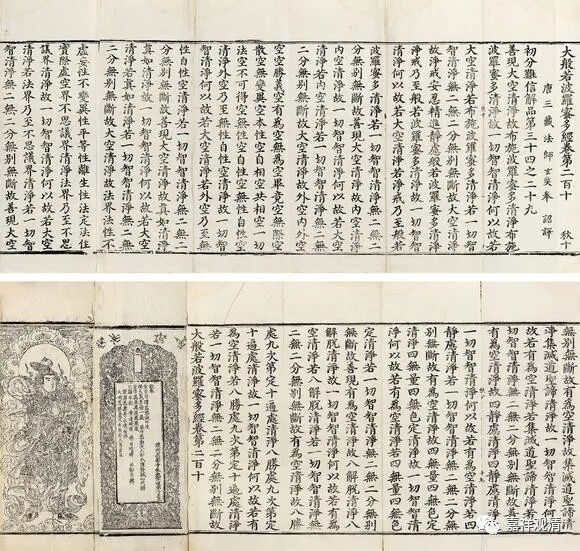 大般若波羅蜜多經卷第二百十 秋十
唐三藏法師玄奘奉 詔譯
初分難信解品第三十四之二十九
善現大空清淨故布施波羅蜜多清淨布施
波羅蜜多清淨故一切智智清淨何以故若
大空清淨若布施波羅蜜多清淨若一切智
智清淨無二無二分無別無斷故大空清淨
故淨戒安忍精進靜慮般若波羅蜜多清淨
淨戒乃至般若波羅蜜多清淨故一切智智
清淨何以故若大空清淨若淨戒乃至般若
波羅蜜多清淨若一切智智清淨無二無二
分無別無斷故善現大空清淨故內空清淨
內空清淨故一切智智清淨何以故若大空
清淨若內空清淨若一切智智清淨無二無
二分無別無斷故大空清淨故外空內外空
空空勝義空有為空無為空畢竟空無際空
散空無變異空本性空自相空共相空一切
法空不可得空無性空自性空無性自性空
清淨外空乃至無性自性空清淨故一切智
智清淨何以故若大空清淨若外空乃至無
性自性空清淨若一切智智清淨無二無二
分無別無斷故善現大空清淨故真如清淨
真如清淨故一切智智清淨何以故若大空
清淨若真如清淨若一切智智清淨無二無
二分無別無斷故大空清淨故法界法性不
虛妄性不變異性平等性離生性法定法住
實際虛空界不思議界清淨法界乃至不思
議界清淨故一切智智清淨何以故若大空
清淨若法界乃至不思議界清淨若一切智
智清淨無二無二分無別無斷故善現大空
無別無斷故有為空清淨故集滅道聖諦清
淨集滅道聖諦清淨故一切智智清淨何以
故若有為空清淨若集滅道聖諦清淨若一
切智智清淨無二無二分無別無斷故善現
有為空清淨故四靜慮清淨四靜慮清淨故
一切智智清淨何以故若有為空清淨若四
靜慮清淨若一切智智清淨無二無二分無
別無斷故有為空清淨故四無量四無色定
清淨四無量四無色定清淨故一切智智清
淨何以故若有為空清淨若四無量四無色
定清淨若一切智智清淨無二無二分無別
無斷故善現有為空清淨故八解脫清淨八
解脫清淨故一切智智清淨何以故若有為
空清淨若八解脫清淨若一切智智清淨無
二無二分無別無斷故有為空清淨故八勝
處九次第定十遍處清淨八勝處九次第定
十遍處清淨故一切智智清淨何以故若有
為空清淨若八勝處九次第定十遍處清淨
若一切智智清淨無二無二分無別無斷故
大般若波羅蜜多經卷第二百十
嘉祥观清